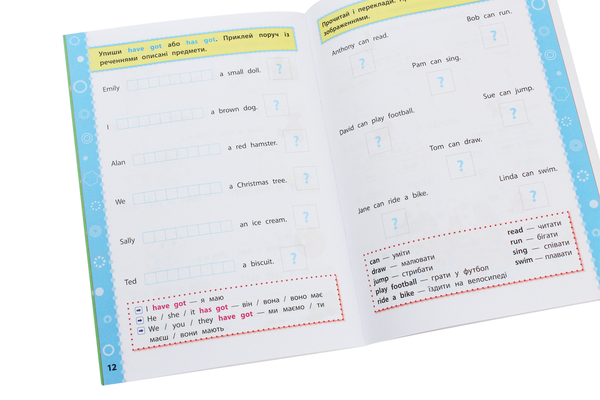 Упиши have got або has got. Приклей поруч із
реченнями описані предмети.
Emily a small doll. ?
I a brown dog. ?
Alan a red hamster. ?
We a Christmas tree. ?
Sally an ice cream. ?
Ted a biscuit. ?
I have got — я маю
He / she / it has got — він / вона / воно має
We / you / they have got — ми маємо / ти
маєш / вони мають
12
Прочитай і переклади.
зображеннями.
Anthony can read. ?
Bob can run. ?
Pam can sing. ?
Sue can jump. ?
David can play football. ?
Tom can draw. ?
Linda can swim. ?
Jane can ride a bike. ?
can — уміти
draw — малювати
jump — стрибати
play football — грати у футбол
ride a bike — їздити на велосипеді
read — читати
run — бігати
sing — співати
swim — плавати